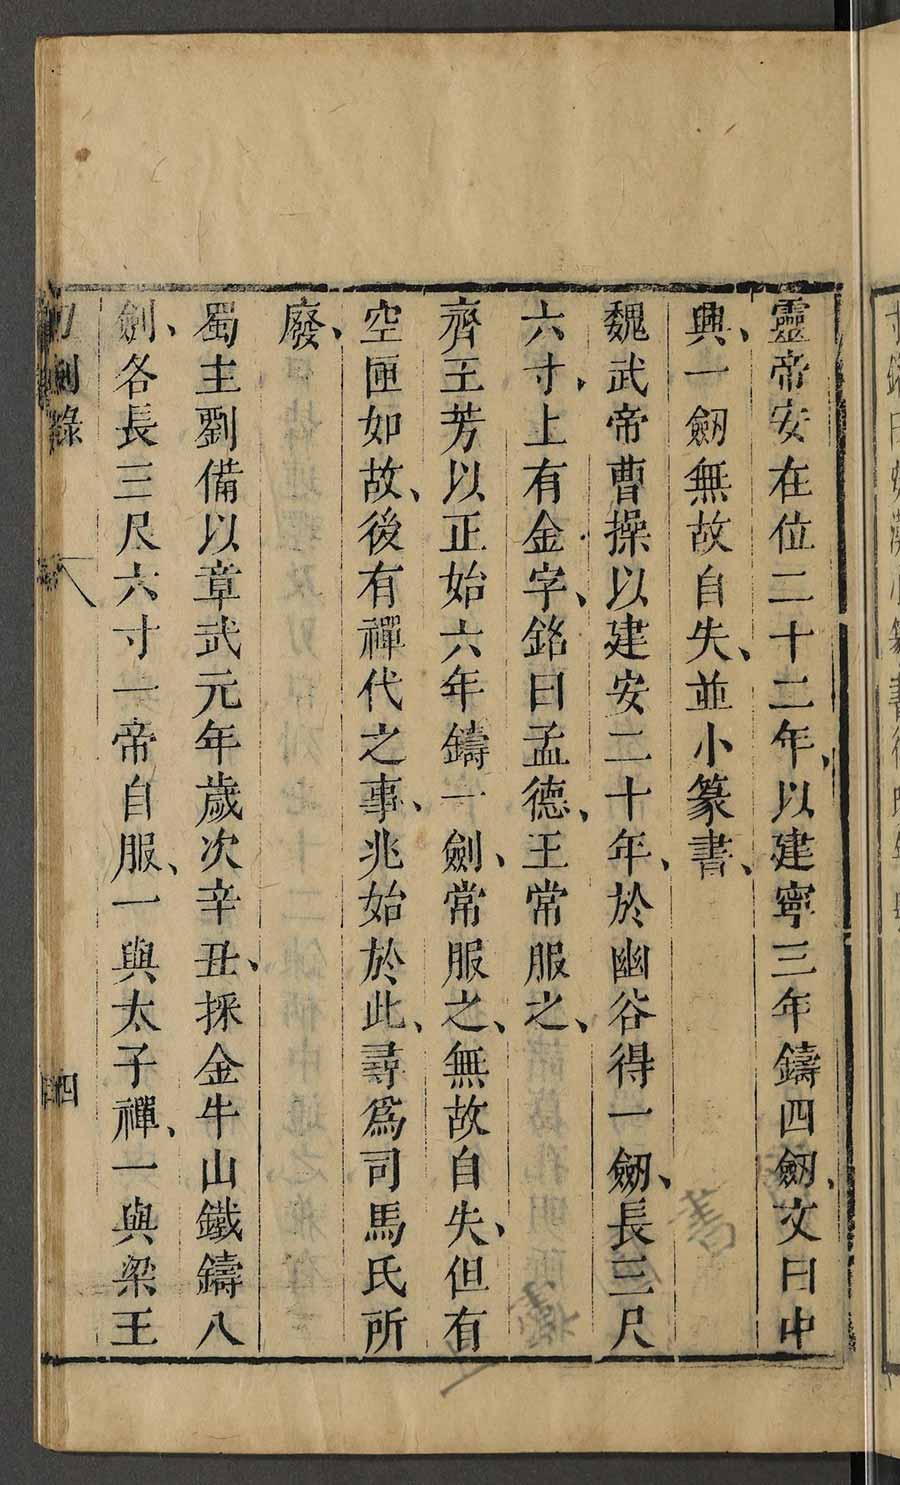 靈帝安在位二十二年、以建寧三年鑄四劒、文曰中
興、一劒無故自失、並小篆書、
魏武帝曹操以建安二十年、於幽谷得一劒、長三尺
六寸、上有金字、銘曰孟德、王常服之、
齊王芳以正始六年鑄一劍、常服之、無故自失、但有
空匣如故、後有禪代之事、兆始於此、尋爲司馬氏所
廢、
蜀主劉備以章武元年歲次辛丑、採金牛山鐵鑄八
劍、各長三尺六寸一帝自服、一與太子禪、一與梁王
刀劍錄
四